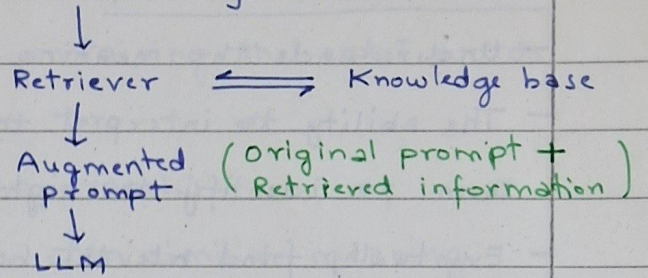 Retriever ⇌ Knowledge base
Augmented prompt (Original prompt + Retrieved information)
LLM